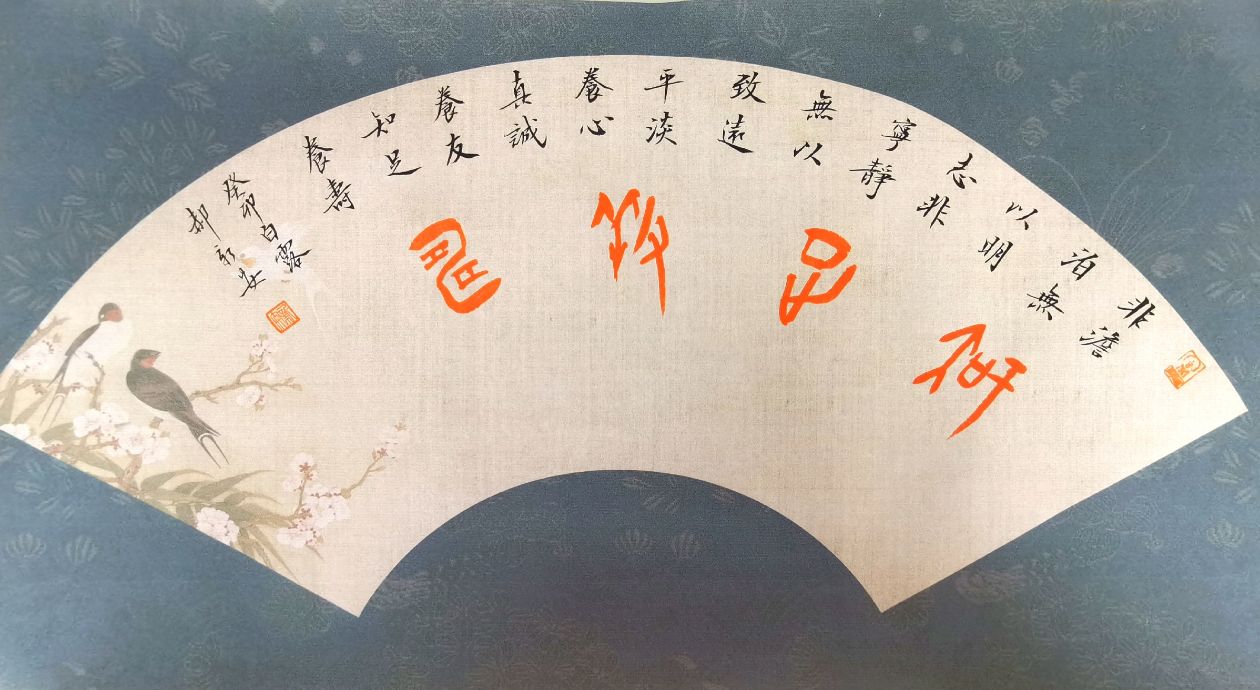 非澹
泊無
以明
志非
寧靜
無以
致遠
平淡
養心
真誠
養友
知足
養壽
癸卯白露
郝